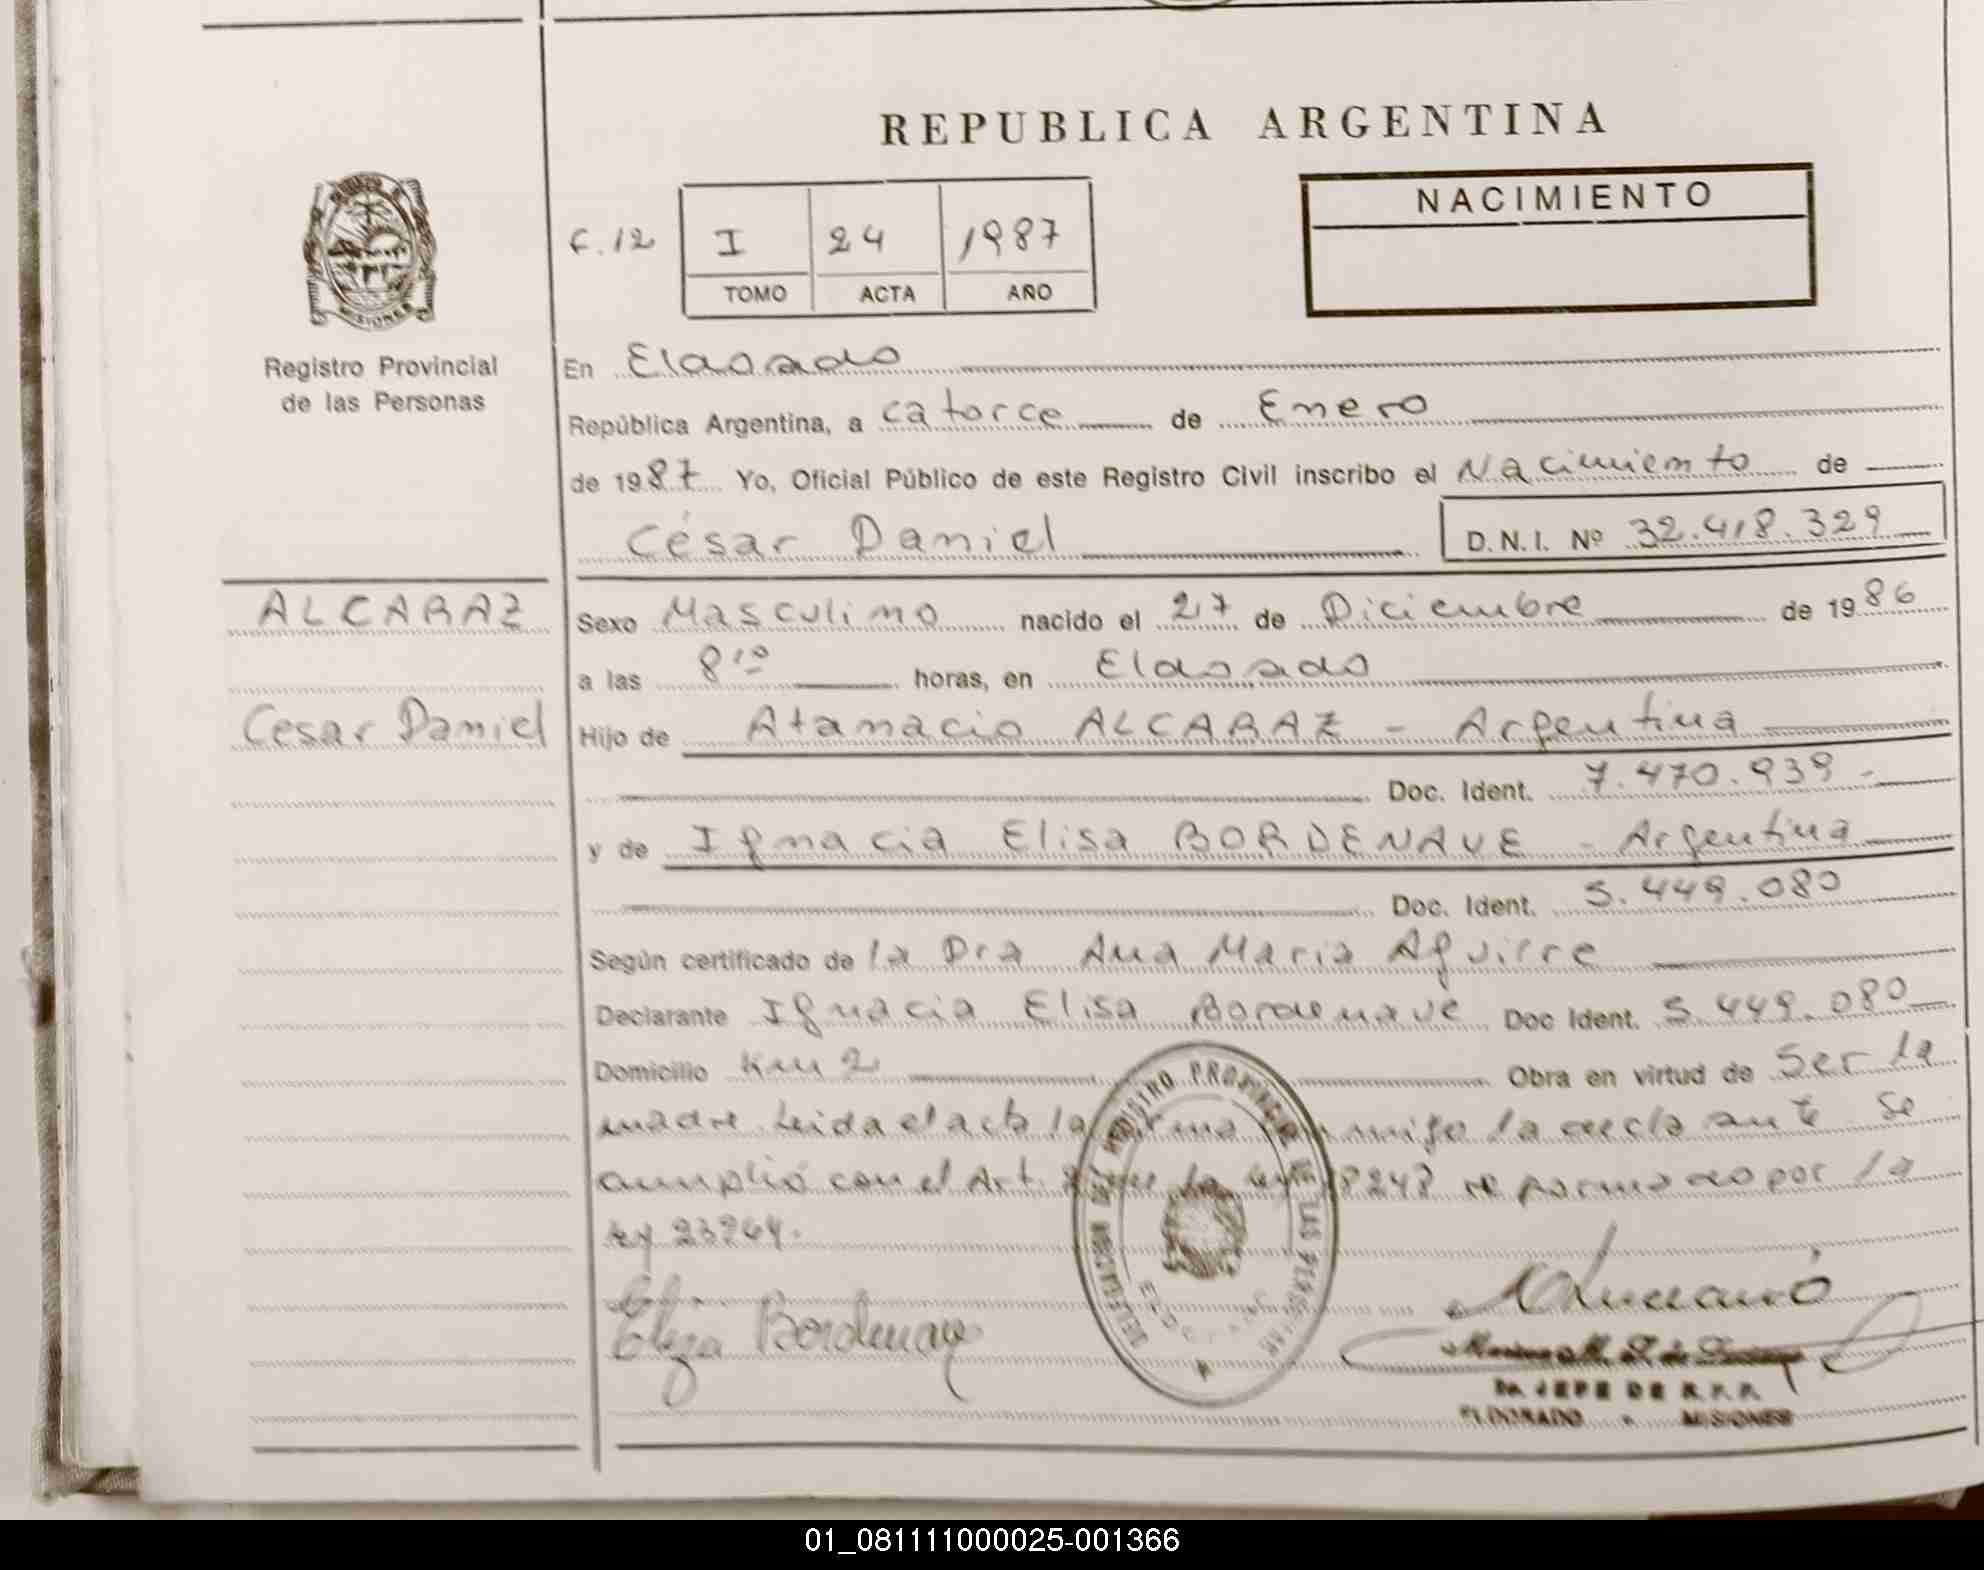 REPUBLICA ARGENTINA
NACIMIENTO
F. 12 I 24 1987
TOMO ACTA AÑO
MISIONES
Registro Provincial
de las Personas
En Eldorado
República Argentina, a catorce de Enero
de 1987 Yo, Oficial Público de este Registro Civil inscribo el Nacimiento de
César Daniel D.N.I. Nº 32.418.329
ALCARAZ
Cesar Daniel
Sexo Masculino nacido el 27 de Diciembre de 1986
a las 8,10 horas, en Eldorado
Hijo de Atanacio ALCARAZ - Argentina
Doc. Ident. 7.470.939.-
y de Ignacia Elisa BORDENAVE - Argentina
Doc. Ident. 5.449.080
Según certificado de la Dra Ana Maria Aguirre
Declarante Ignacia Elisa Bordenave Doc Ident. 5.449.080
Domicilio Km 2 Obra en virtud de Ser la
madre. Leida el acta la firma conmigo la declarante. Se
cumplió con el Art. de la ley 18248 reformado por la
ley 23264.
Eliza Bordenave
REGISTRO PROVINCIAL DE LAS PERSONAS
JEFE DE R.P.P.
ELDORADO - MISIONES
01_081111000025-001366